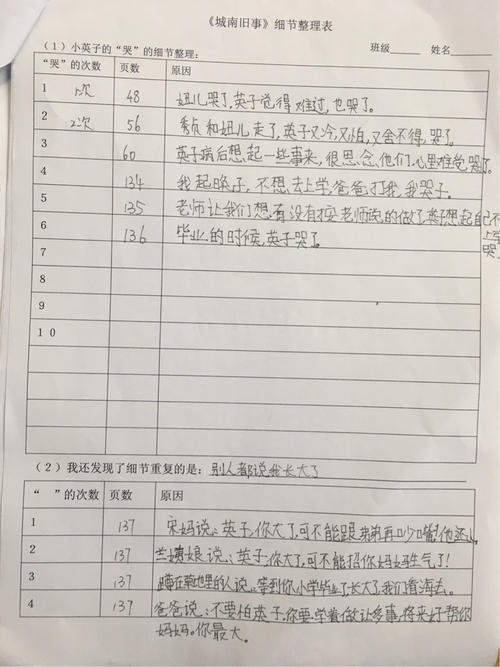 《城南旧事》细节整理表
(1)小英子的“哭”的细节整理: 班级 姓名
“哭”的次数 页数 原因
1 1次 48 妞儿哭了,英子觉得难过,也哭了。
2 2次 56 秀贞和妞儿走了,英子又冷又怕,又舍不得,哭了。
3 60 英子病后想起一些事来,很思念他们,心里难受哭了。
4 134 我起晚了,不想去上学,爸爸打我,我哭了。
5 135 老师让我们想有没有按老师说的做了,英子想起自己不
上学
哭
6 136 毕业的时候,英子哭了。
7
8
9
10
(2)我还发现了细节重复的是: 别人都说我长大了
“ ”的次数 页数 原因
1 137 宋妈说:英子,你大了,可不能跟弟弟再吵嘴!他还小
2 137 兰姨娘说:英子,你大了,可不能招你妈妈生气了!
3 137 蹲在草地里的人说:等到你小学毕业了,长大了,我们看海去。
4 137 爸爸说:不要怕,英子,你要学着做许多事,将来好帮你
妈妈。你最大。